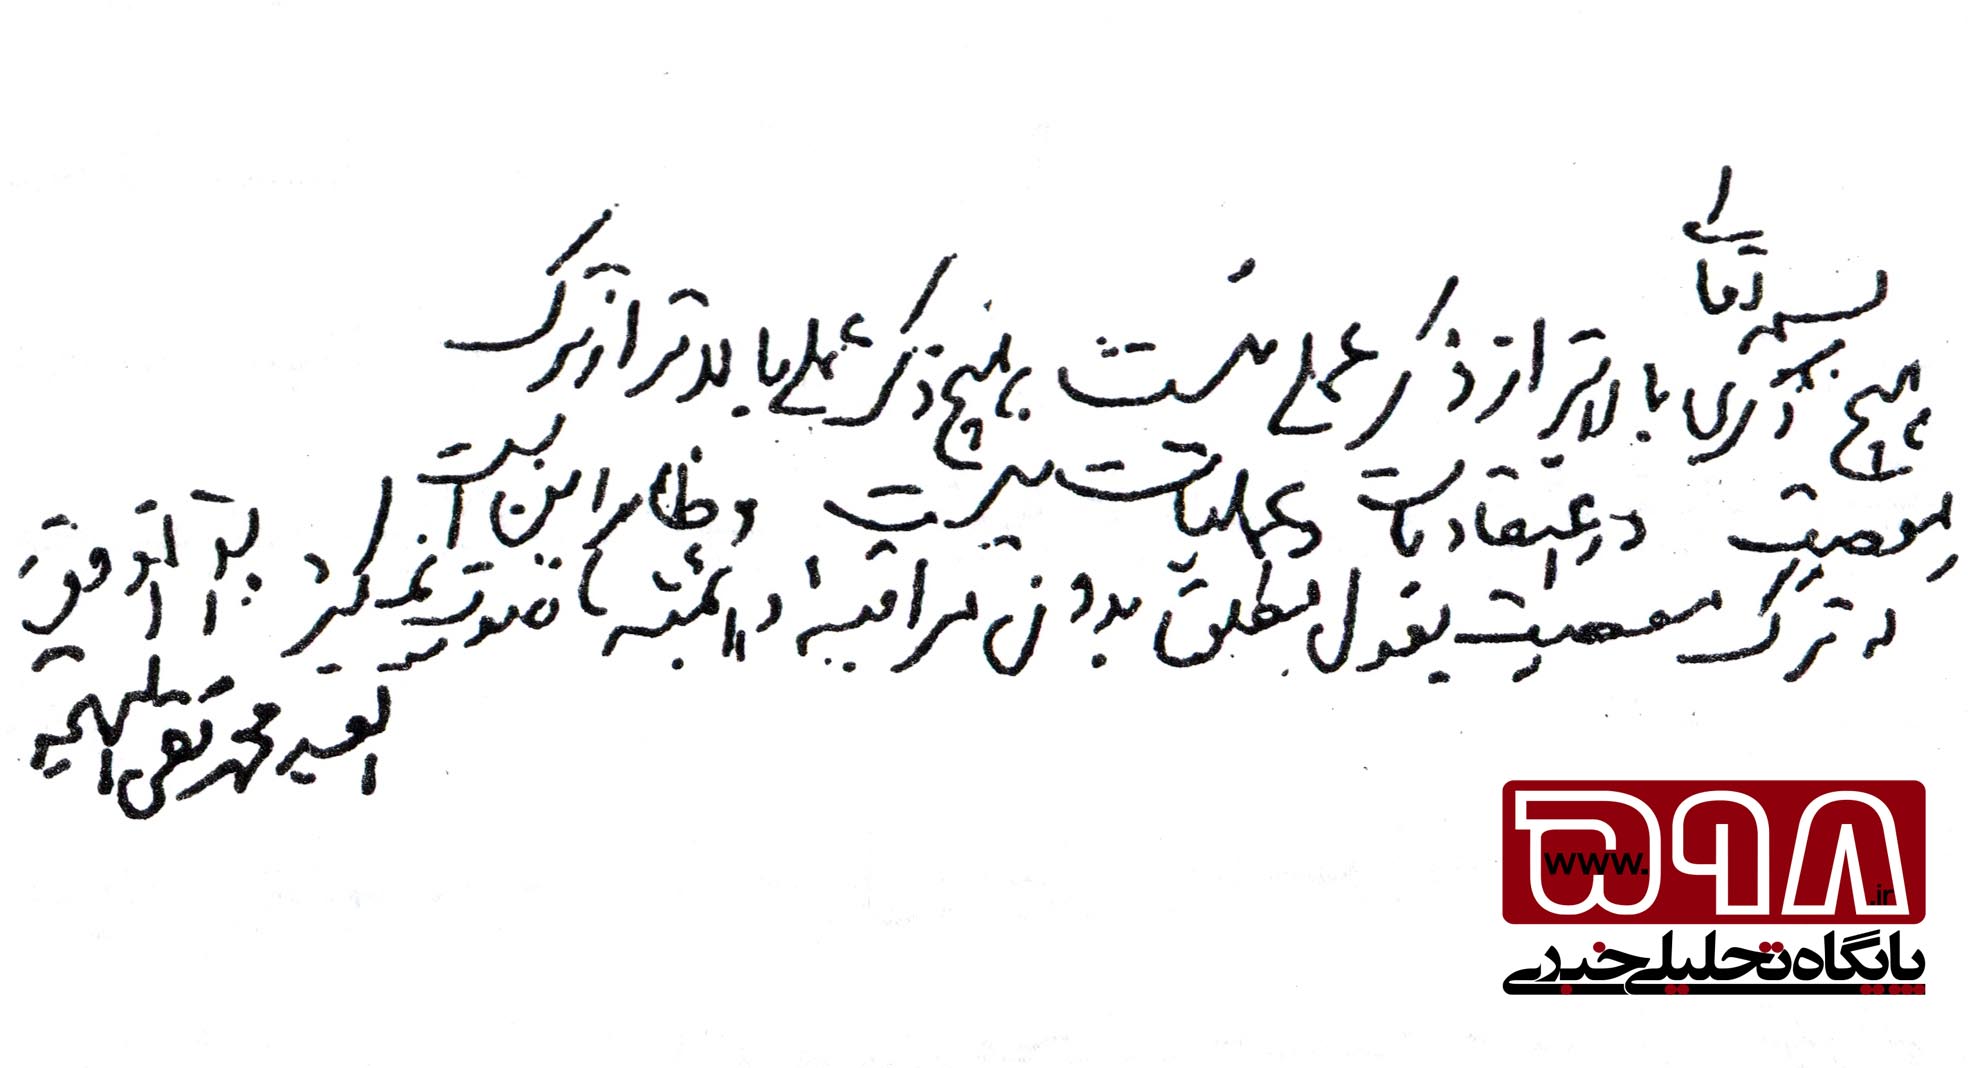 بسمه تعالی
هیچ ذکری بالاتر از ذکر عملی نیست هیچ ذکر عملی بالاتر از ترک
معصیت در اعتقادیات و عملیات نیست و ظاهر این است
که ترک معصیت بقول مطلق بدون مراقبه دائمیه صورت نمی گیرد والله الموفق
العبد محمد تقی البهجة
۵۹۸
www. .ir
پایگاه تحلیلی خبری